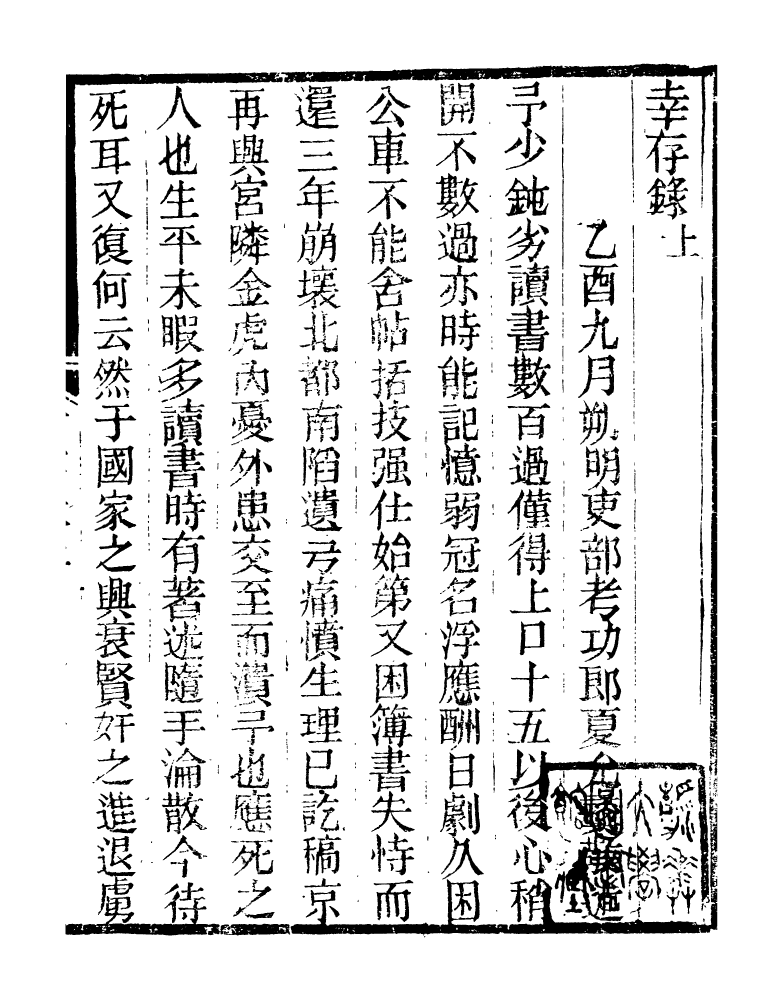 幸存錄上
乙酉九月朔明吏部考功郎夏允彝
予少鈍劣讀書數百過僅得上口十五以後心稍
開不數過亦時能記憶弱冠名浮應酬日劇久困
公車不能舍帖括技强仕始第又困簿書失恃而
還三年崩壞北都南陷遺弓痛憤生理已訖稿京
再興宮隣金虎內憂外患交至而潰予也應死之
人也生平未暇多讀書時有著述隨手淪散今待
死耳又復何云然于國家之興衰賢奸之進退虜